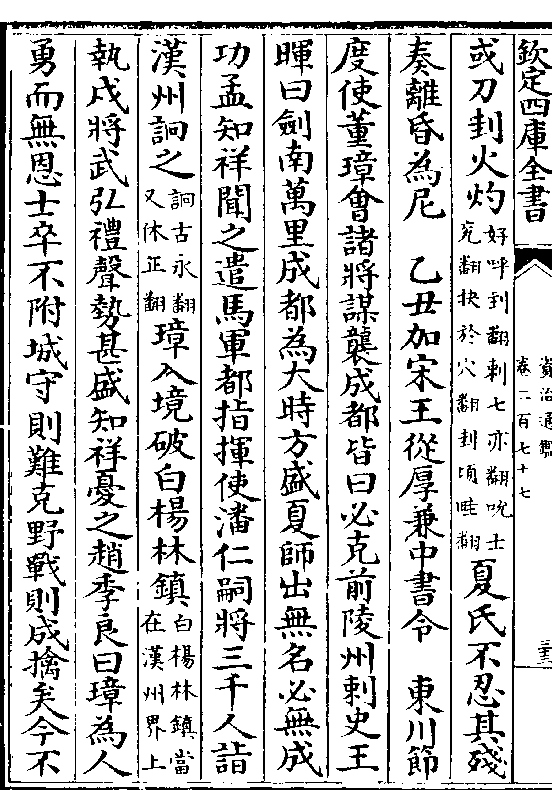 欽定四庫全書
資治通鑑
卷二百七十七
或刀刲火灼好呼到翻刺七亦翻吮士兖翻抉於穴翻刲頃畦翻夏氏不忍其殘
奏離昏為尼　乙丑加宋王從厚兼中書令　東川節
度使董璋會諸將謀襲成都皆曰必克前陵州刺史王
暉曰劍南萬里成都為大時方盛夏師出無名必無成
功孟知祥聞之遣馬軍都指揮使潘仁嗣將三千人詣
漢州詗之詗古永翻又休正翻璋入境破白楊林鎮白楊林鎮當在漢州界上
執戍將武弘禮聲勢甚盛知祥憂之趙季良曰璋為人
勇而無恩士卒不附城守則難克野戰則成擒矣今不